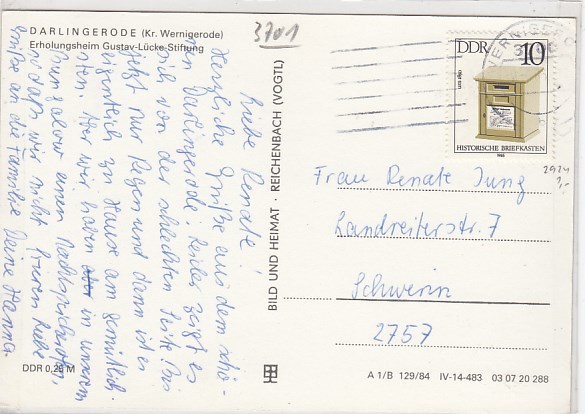 DARLINGERODE (Kr. Wernigerode)
Erholungsheim Gustav-Lücke-Stiftung
3701
Liebe Renate!
Herzliche Grüße aus dem schö-
nen Darlingerode. Leider zeigt es
sich von der schlechten Seite. Bis
jetzt nur Regen und dann ist es
eigentlich zu Hause am gemütlich-
sten. Aber wir haben in unserem
Bungalow einen Nachtspeicherofen,
so daß wir nicht frieren. Liebe
Grüße an die Familie Deine Hanna.
DDR 0,25 M
BILD UND HEIMAT · REICHENBACH (VOGTL)
DDR 10
um 1860
HISTORISCHE BRIEFKASTEN
1985
Frau Renate Jung
Landreiterstr. 7
Schwerin
2757
2924
A 1/B 129/84 IV-14-483 03 07 20 288